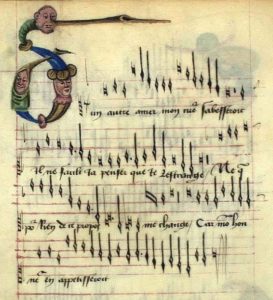 un autre amer mon cueur sabesseroit
Il ne fault ja penser que je lestrange / Ne q
po[ur] Rien de ce propos me change / Car mo[n] hon
neur en appetisseroit